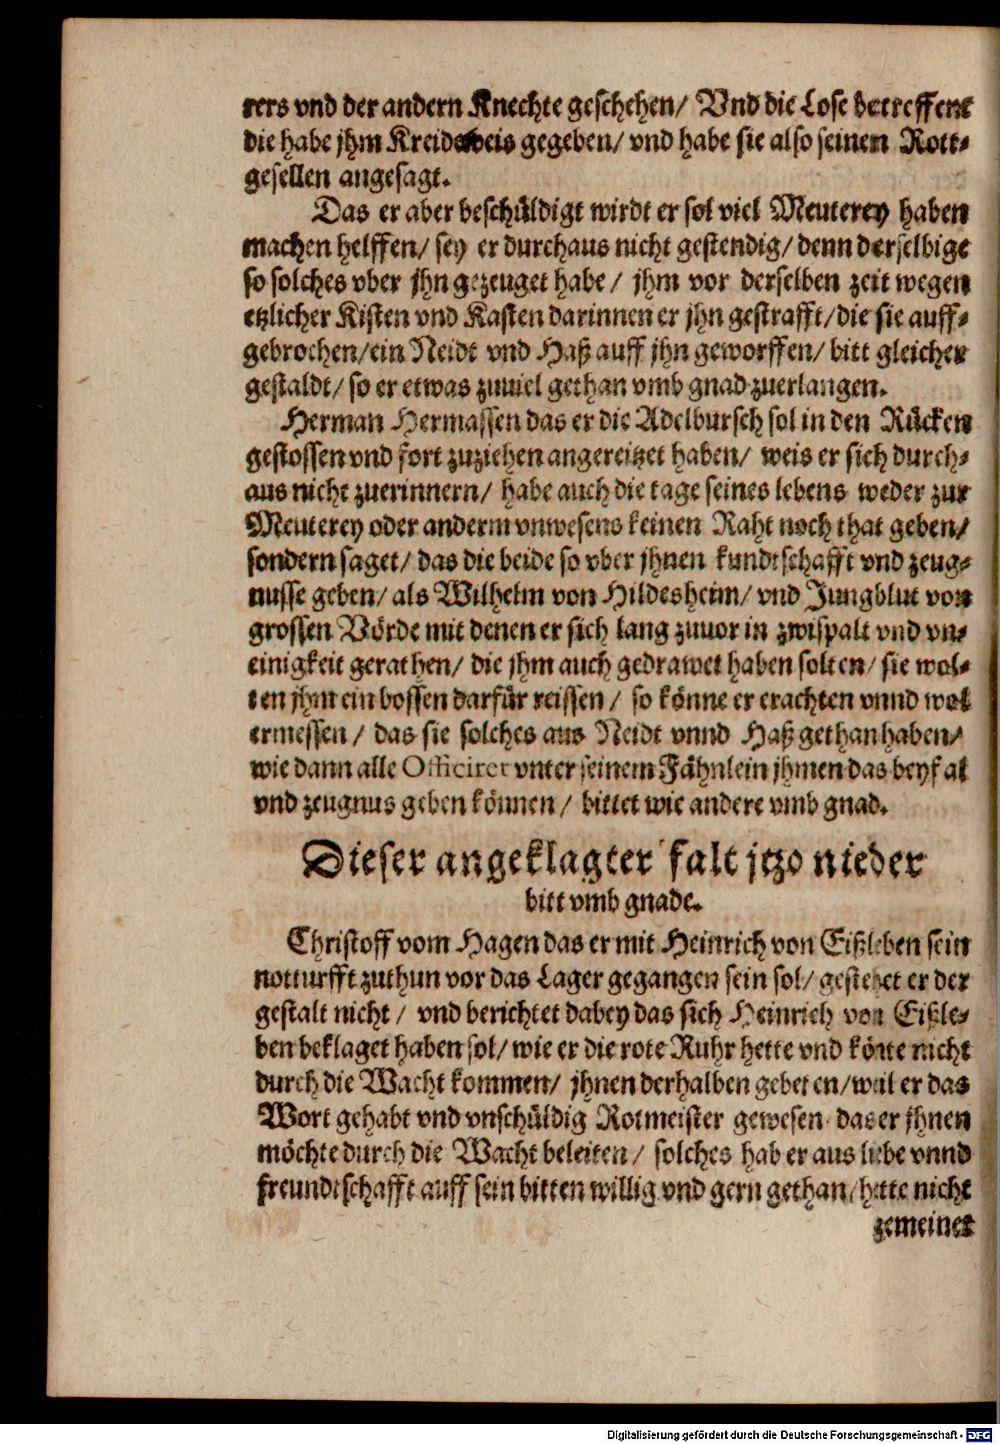 rers vnd der andern Knechte geschehen/ Vnd die Lose betreffent
die habe jhm Kreideweis gegeben/ vnd habe sie also seinen Rott-
gesellen angesagt.
Das er aber beschüldigt wirdt er sol viel Meuterey haben
machen helffen/ sey er durchaus nicht gestendig/ denn derselbige
so solches vber jhn gezeuget habe/ jhm vor derselben zeit wegen
etzlicher Kisten vnd Kasten darinnen er jhn gestrafft/ die sie auff-
gebrochen/ ein Neidt vnd Haß auff jhn geworffen/ bitt gleicher
gestaldt/ so er etwas zuuiel gethan vmb gnad zuerlangen.
Herman Hermassen das er die Adelbursch sol in den Rücken
gestossen vnd fort zuziehen angereitzet haben/ weis er sich durch-
aus nicht zuerinnern/ habe auch die tage seines lebens weder zur
Meuterey oder anderm vnwesens keinen Raht noch that geben/
sondern saget/ das die beide so vber jhnen kundtschafft vnd zeug-
nusse geben/ als Wilhelm von Hildesheim/ vnd Jungblut von
grossen Vörde mit denen er sich lang zuuor in zwispalt vnd vn-
einigkeit gerathen/ die jhm auch gedrawet haben solten/ sie wol-
ten jhm ein bossen darfür reissen/ so könne er erachten vnnd wol
ermessen/ das sie solches aus Neidt vnnd Haß gethan haben/
wie dann alle Officirer vnter seinem Fähnlein jhmen das beyfal
vnd zeugnus geben können/ bittet wie andere vmb gnad.
Dieser angeklagter falt jtzo nieder
bitt vmb gnade.
Christoff vom Hagen das er mit Heinrich von Eißleben sein
notturfft zuthun vor das Lager gegangen sein sol/ gestehet er der
gestalt nicht/ vnd berichtet dabey das sich Heinrich von Eißle-
ben beklaget haben sol/ wie er die rote Ruhr hette vnd könte nicht
durch die Wacht kommen/ jhnen derhalben gebeten/ weil er das
Wort gehabt vnd vnschüldig Rotmeister gewesen das er jhnen
möchte durch die Wacht beleiten/ solches hab er aus liebe vnnd
freundtschafft auff sein bitten willig vnd gern gethan/ hette nicht
gemeinet